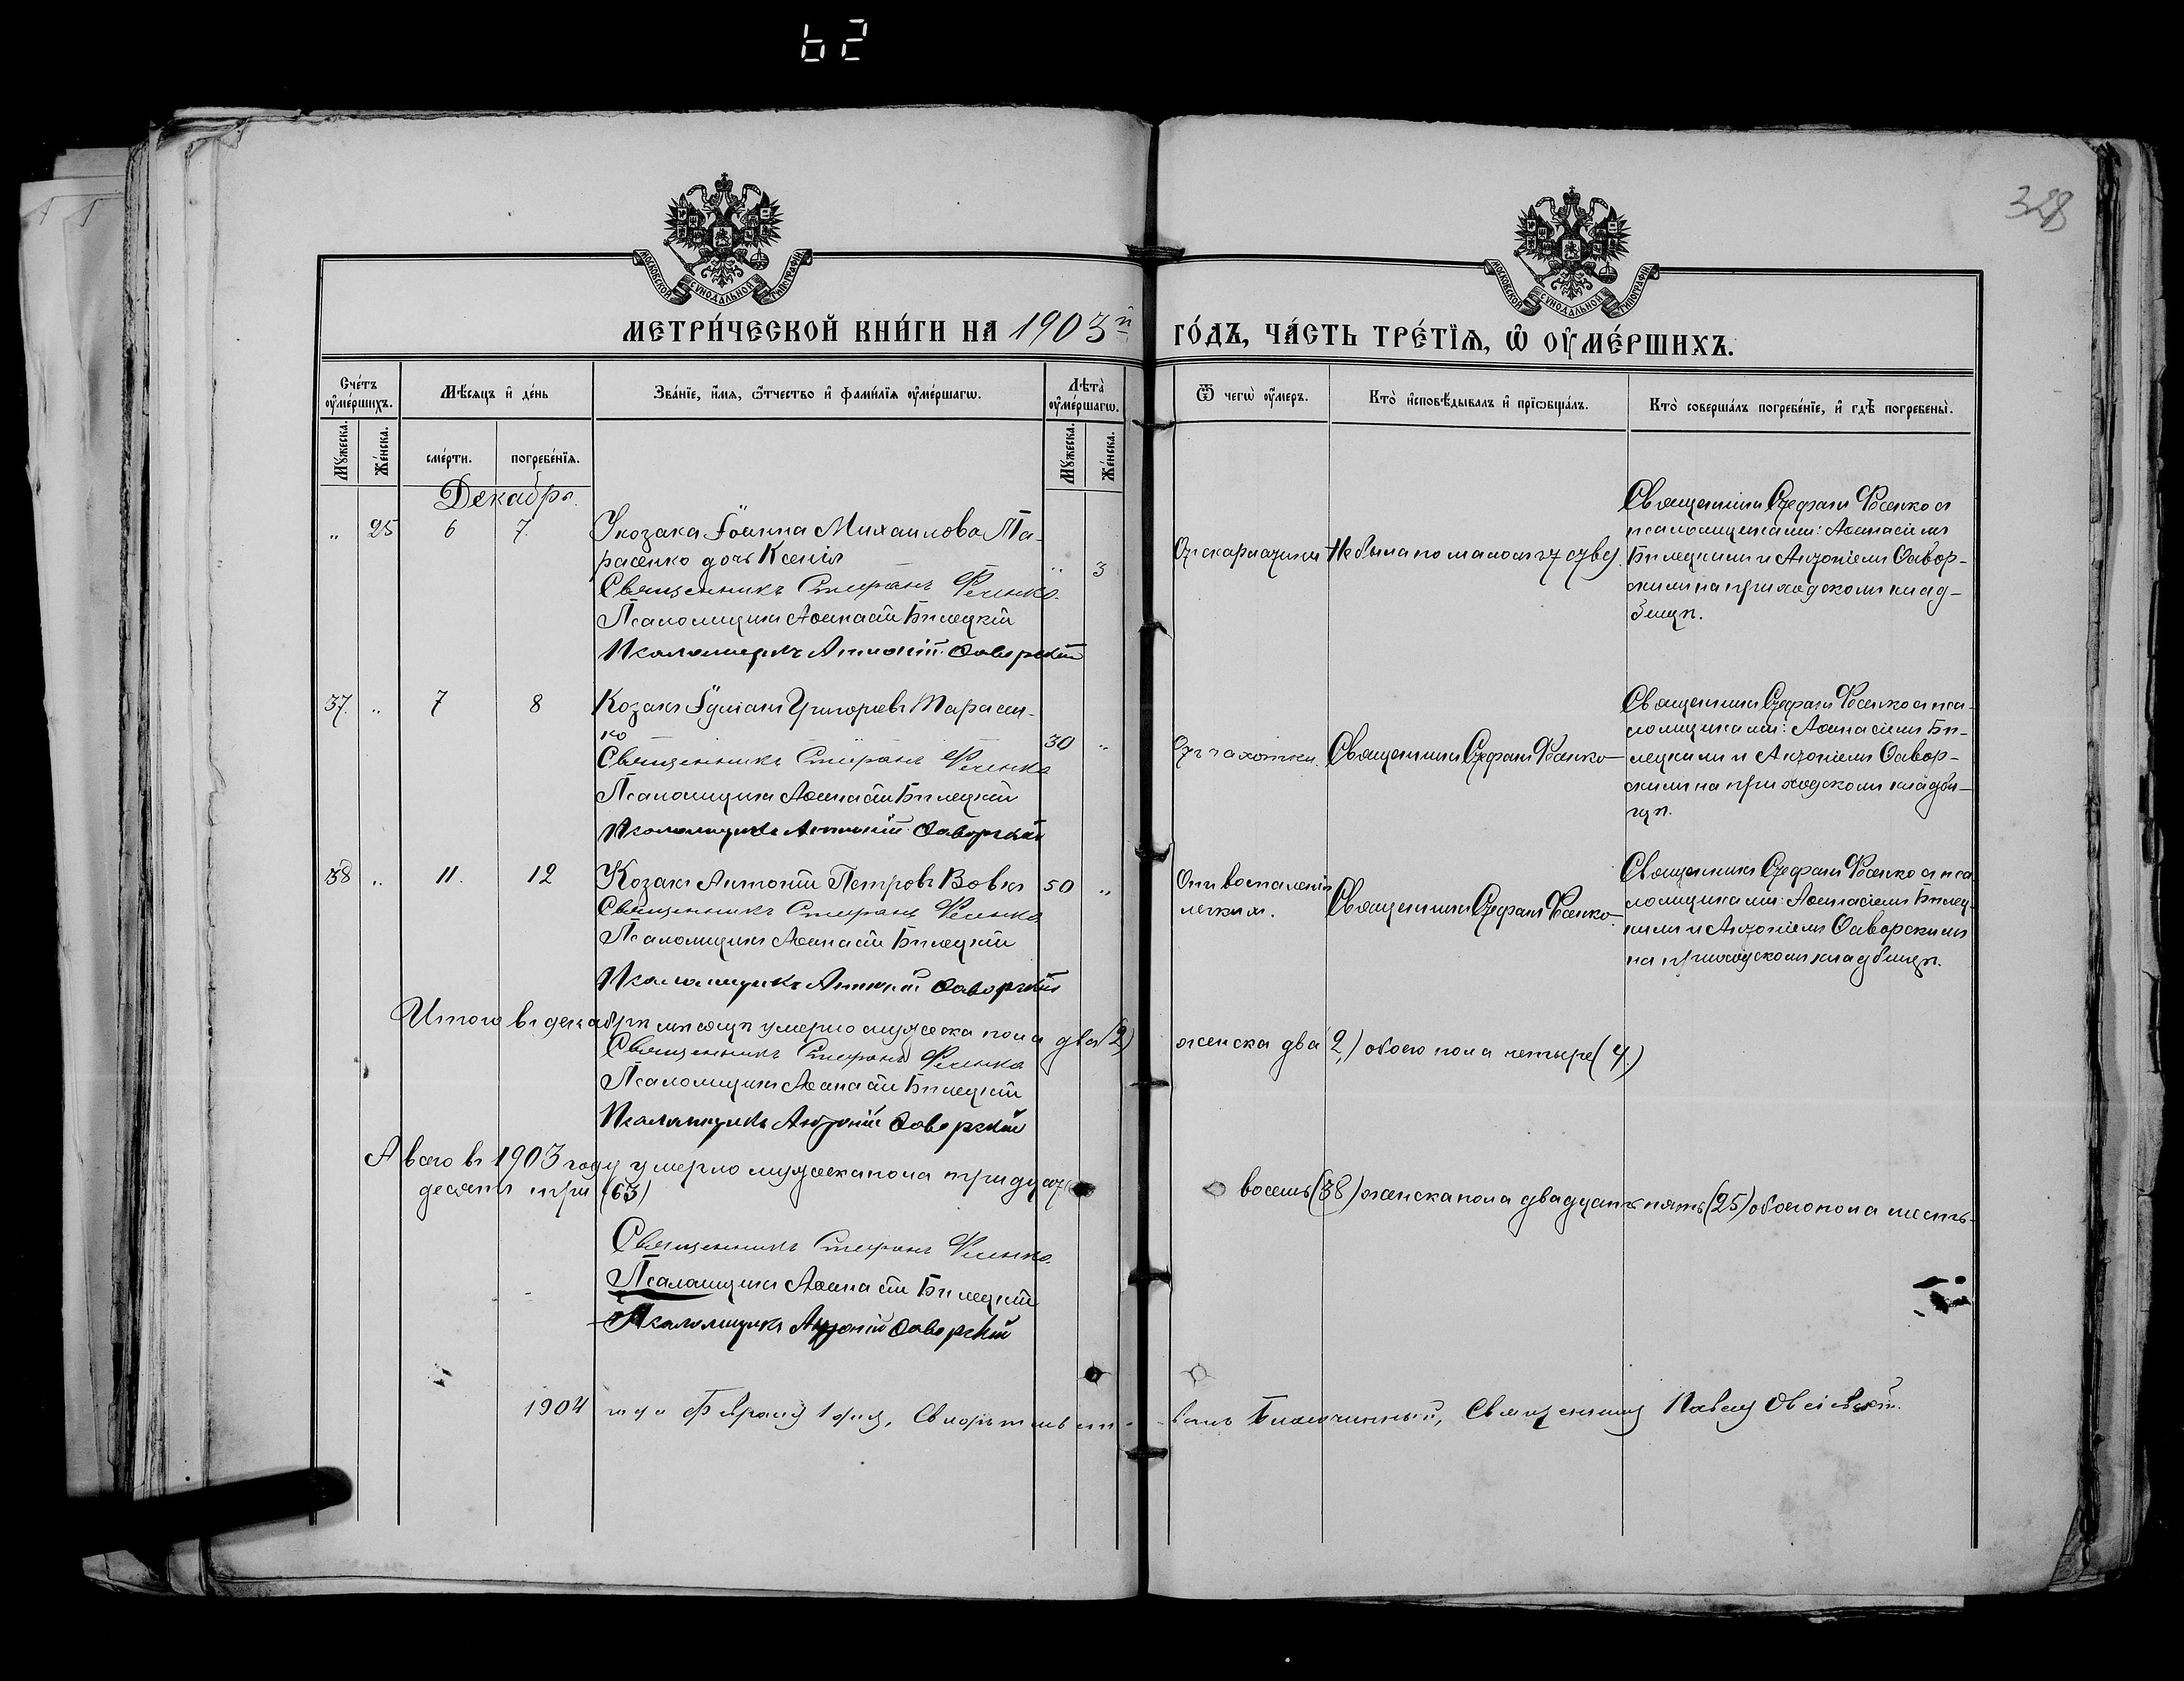 62
328
МОСКОВСКОЙ СѴНОДАЛЬНОЙ ТИПОГРАФІИ
МОСКОВСКОЙ СѴНОДАЛЬНОЙ ТИПОГРАФІИ
МЕТРИ́ЧЕСКОЙ КНИ́ГИ НА 1903й ГО́ДЪ, ЧА́СТЬ ТРЕ́ТЇѦ, Ѽ ОУМЕ́РШИХЪ.
Сче́тъ оумершихъ.
Мѣсяцъ и день
Званїе, имя, ѻтчество и фамилїя оумершагѡ.
Лѣта оумершагѡ.
Ѿ чегѡ оумеръ.
Кто исповѣдывалъ и прїѡбщалъ.
Кто совершалъ погребенїе, и гдѣ погребены.
Мꙋжеска.
Женска.
смерти.
погребенїя.
Мꙋжеска.
Женска.
Декабрь.
„ 25 6 7.
У козака Іоанна Михаилова Та-
расенко дочь Ксенія
„ 3
Священникъ Стефанъ Ѳесенко.
Псаломщикъ Аѳанасій Билецкій
Псаломщикъ Антоній Саворскій
От скарлатины
Не была по малолѣтству.
Священникъ Стефанъ Ѳесенко съ
псаломщиками: Аѳанасіемъ
Билецкимъ и Антоніемъ Савор-
скимъ на приходскомъ клад-
бищѣ.
37. „ 7 8
Козакъ Іуліанъ Григорьевъ Тарасен-
ко
30 „
Священникъ Стефанъ Ѳесенко
Псаломщикъ Аѳанасій Билецкій
Псаломщикъ Антоній Саворскій
Отъ чахотки.
Священникъ Стефанъ Ѳесенко
Священникъ Стефанъ Ѳесенко съ пса-
ломщиками: Аѳанасіемъ Би-
лецкимъ и Антоніемъ Савор-
скимъ на приходскомъ кладби-
щѣ.
38 „ 11. 12
Козакъ Антоній Петровъ Вовкъ
50 „
Священникъ Стефанъ Ѳесенко
Псаломщикъ Аѳанасій Билецкій
Псаломщикъ Антоній Саворскій
Отъ воспаленія
легкихъ.
Священникъ Стефанъ Ѳесенко
Священникъ Стефанъ Ѳесенко съ пса
ломщиками: Аѳанасіемъ Билец-
кимъ и Антоніемъ Саворскимъ
на приходскомъ кладбищѣ.
Итого въ декабрѣ мѣсяцѣ умерло мужеска пола два (2) женска два (2) обоего пола четыре (4)
Священникъ Стефанъ Ѳесенко
Псаломщикъ Аѳанасій Билецкій
Псаломщикъ Антоній Саворскій
А всего въ 1903 году умерло мужеска пола тридцать восемь (38) женска пола двадцать пять (25) обоего пола шесть-
десятъ три (63)
Священникъ Стефанъ Ѳесенко.
Псаломщикъ Аѳанасій Билецкій
Псаломщикъ Антоній Саворскій
1904 года Февраля 1 дня, Свидѣтельство- валъ Благочинный, Священникъ Павелъ